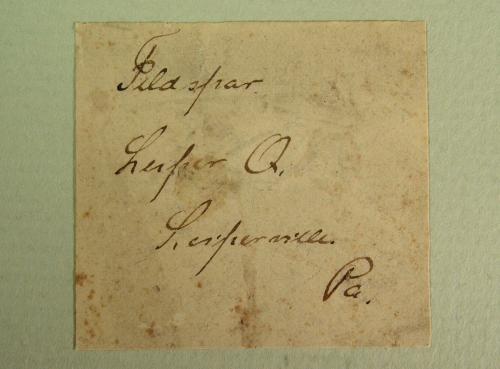 Feldspar.
Leiper Q.
Leiperville.
Pa.